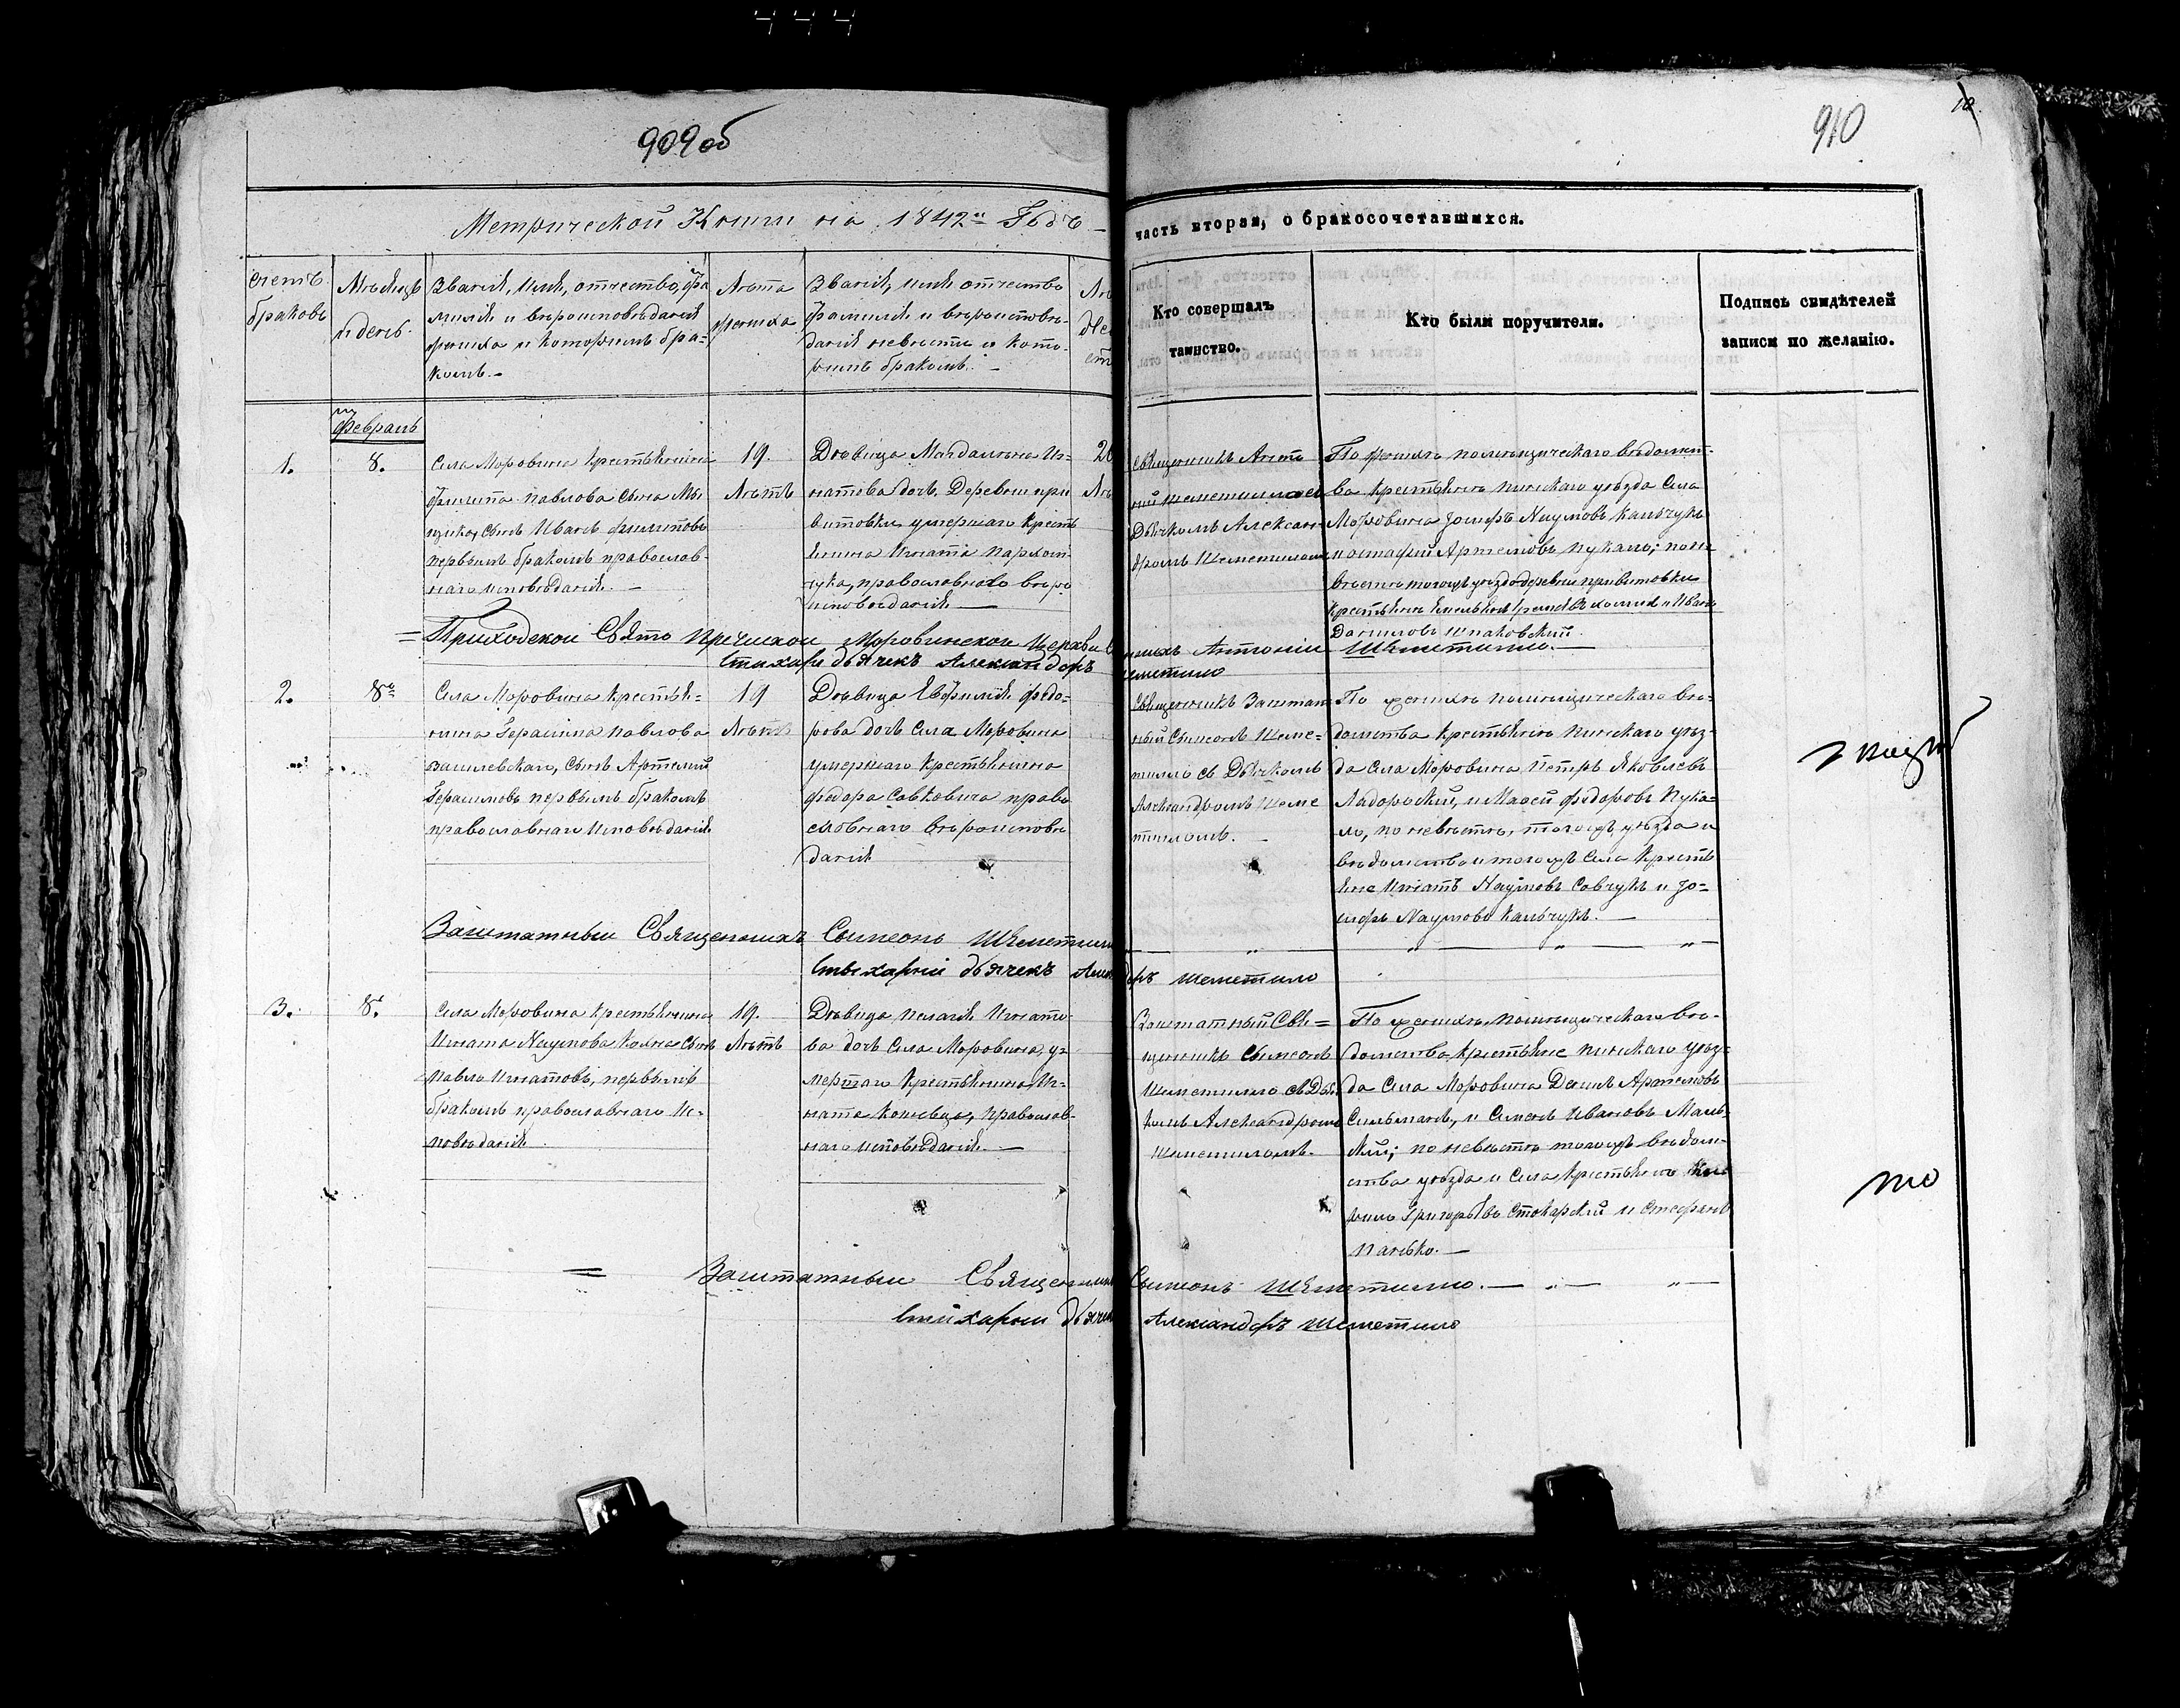 444
909об
910
10.
Метрической Книги на 1842й Годъ
часть вторая, о бракосочетавшихся.
Счетъ
браковъ
Мѣсяцъ
и день.
Званія, имя, отчество, фа
милія и вѣроисповѣданія
жениха и которымъ бра=
комъ.
Лѣта
жениха
Званія, имя отчество
фамилія и вѣроисповѣ-
данія невѣсты и кото-
рымъ бракомъ.
Кто совершалъ
таинство.
Кто были поручители.
Подпись свидѣтелей
записи по желанію.
Февраль
1.
8.
Села Моровина крестьянина
Филипа Павлова сына
сынъ Иванъ Филиповъ
первымъ бракомъ православ-
наго исповѣданія.
19.
Лѣтъ
Дѣвица Магдалына Иг=
натова дочь, Деревни при
витовки умершаго крестъ
янина Игната Пархом-
чука, православнаго вѣро
исповѣданія
20
Священникъ Анто
ній Шеметилло съ
Дьячкомъ Алексан-
дромъ Шеметиломъ
По женихѣ помѣщическаго вѣдомст-
ва крестьяне пинскаго уѣзда Села
Моровина Іосифъ Наумовъ Кальчукъ
Артемовъ Пукало; по не-
вѣстѣ тогожъ уѣзда деревни привитовки
крестьяне и Иванъ
Даниловъ Шпаковскій.
=Приходской Свято Пречиской Моровинской Церкви Священникъ Антоній Шеметилло.
Стихарн дьячекъ Александръ Шеметило
2.
8.
Села Моровина крестья=
нина Герасима Павлова
василевскаго, сынъ Артемій
Герасимовъ первымъ бракомъ
православнаго исповѣданія
19
Лѣтъ
Дѣвица Евфимія Федо=
рова дочь Села Моровина
умершаго крестьянина
федора Савковича право
славнаго вѣроисповѣ
данія
Священникъ Заштат
ный Сымеонъ Шеме=
тилло съ Дьячкомъ
Александромъ Шеме
тиломъ.
По женихѣ помѣщическаго вѣ-
домства крестьяне пинскаго уѣз-
да села Моровина Петръ Яковлевъ
Ладорскій, и Моисей федоровъ Пука=
ло, по невѣстѣ, тогожъ уѣзда и
вѣдомства и тогожъ Села крестъ
яне Игнатъ Наумовъ Савчукъ и Іо=
сифъ Наумовъ Кальчукъ.
Заштатный Священникъ Сымеонъ Шеметилло
Стихарный дьячекъ Александръ Шеметило
3.
8.
Села Моровина крестьянина
Игната Наумова Кохна сынъ
Павло Игнатовъ, первымъ
бракомъ православнаго И-
повѣданія
19.
Лѣтъ
Дѣвица Пелагія Игнато
ва дочь Села Моровина, у=
мершаго крестьянина Иг-
ната Концевца, православ-
наго исповѣданія.
Заштатный Свя=
щенникъ Сымеонъ
Шеметилло съ Дьяч
комъ Александромъ
Шеметиломъ.
По женихѣ, помѣщическаго вѣ-
домства, крестьяне пинскаго уѣз-
да Села Моровина Демьянъ Артемовъ
и Симонъ Ивановъ Маль-
кій; по невѣстѣ тогожъ вѣдом-
ства уѣзда и Села крестьяне
Григорьевъ Стокарскій и Стефанъ
Панько.
= Заштатный Священникъ Сымеонъ Шеметилло.
Стихарный дьячекъ Александръ Шеметило